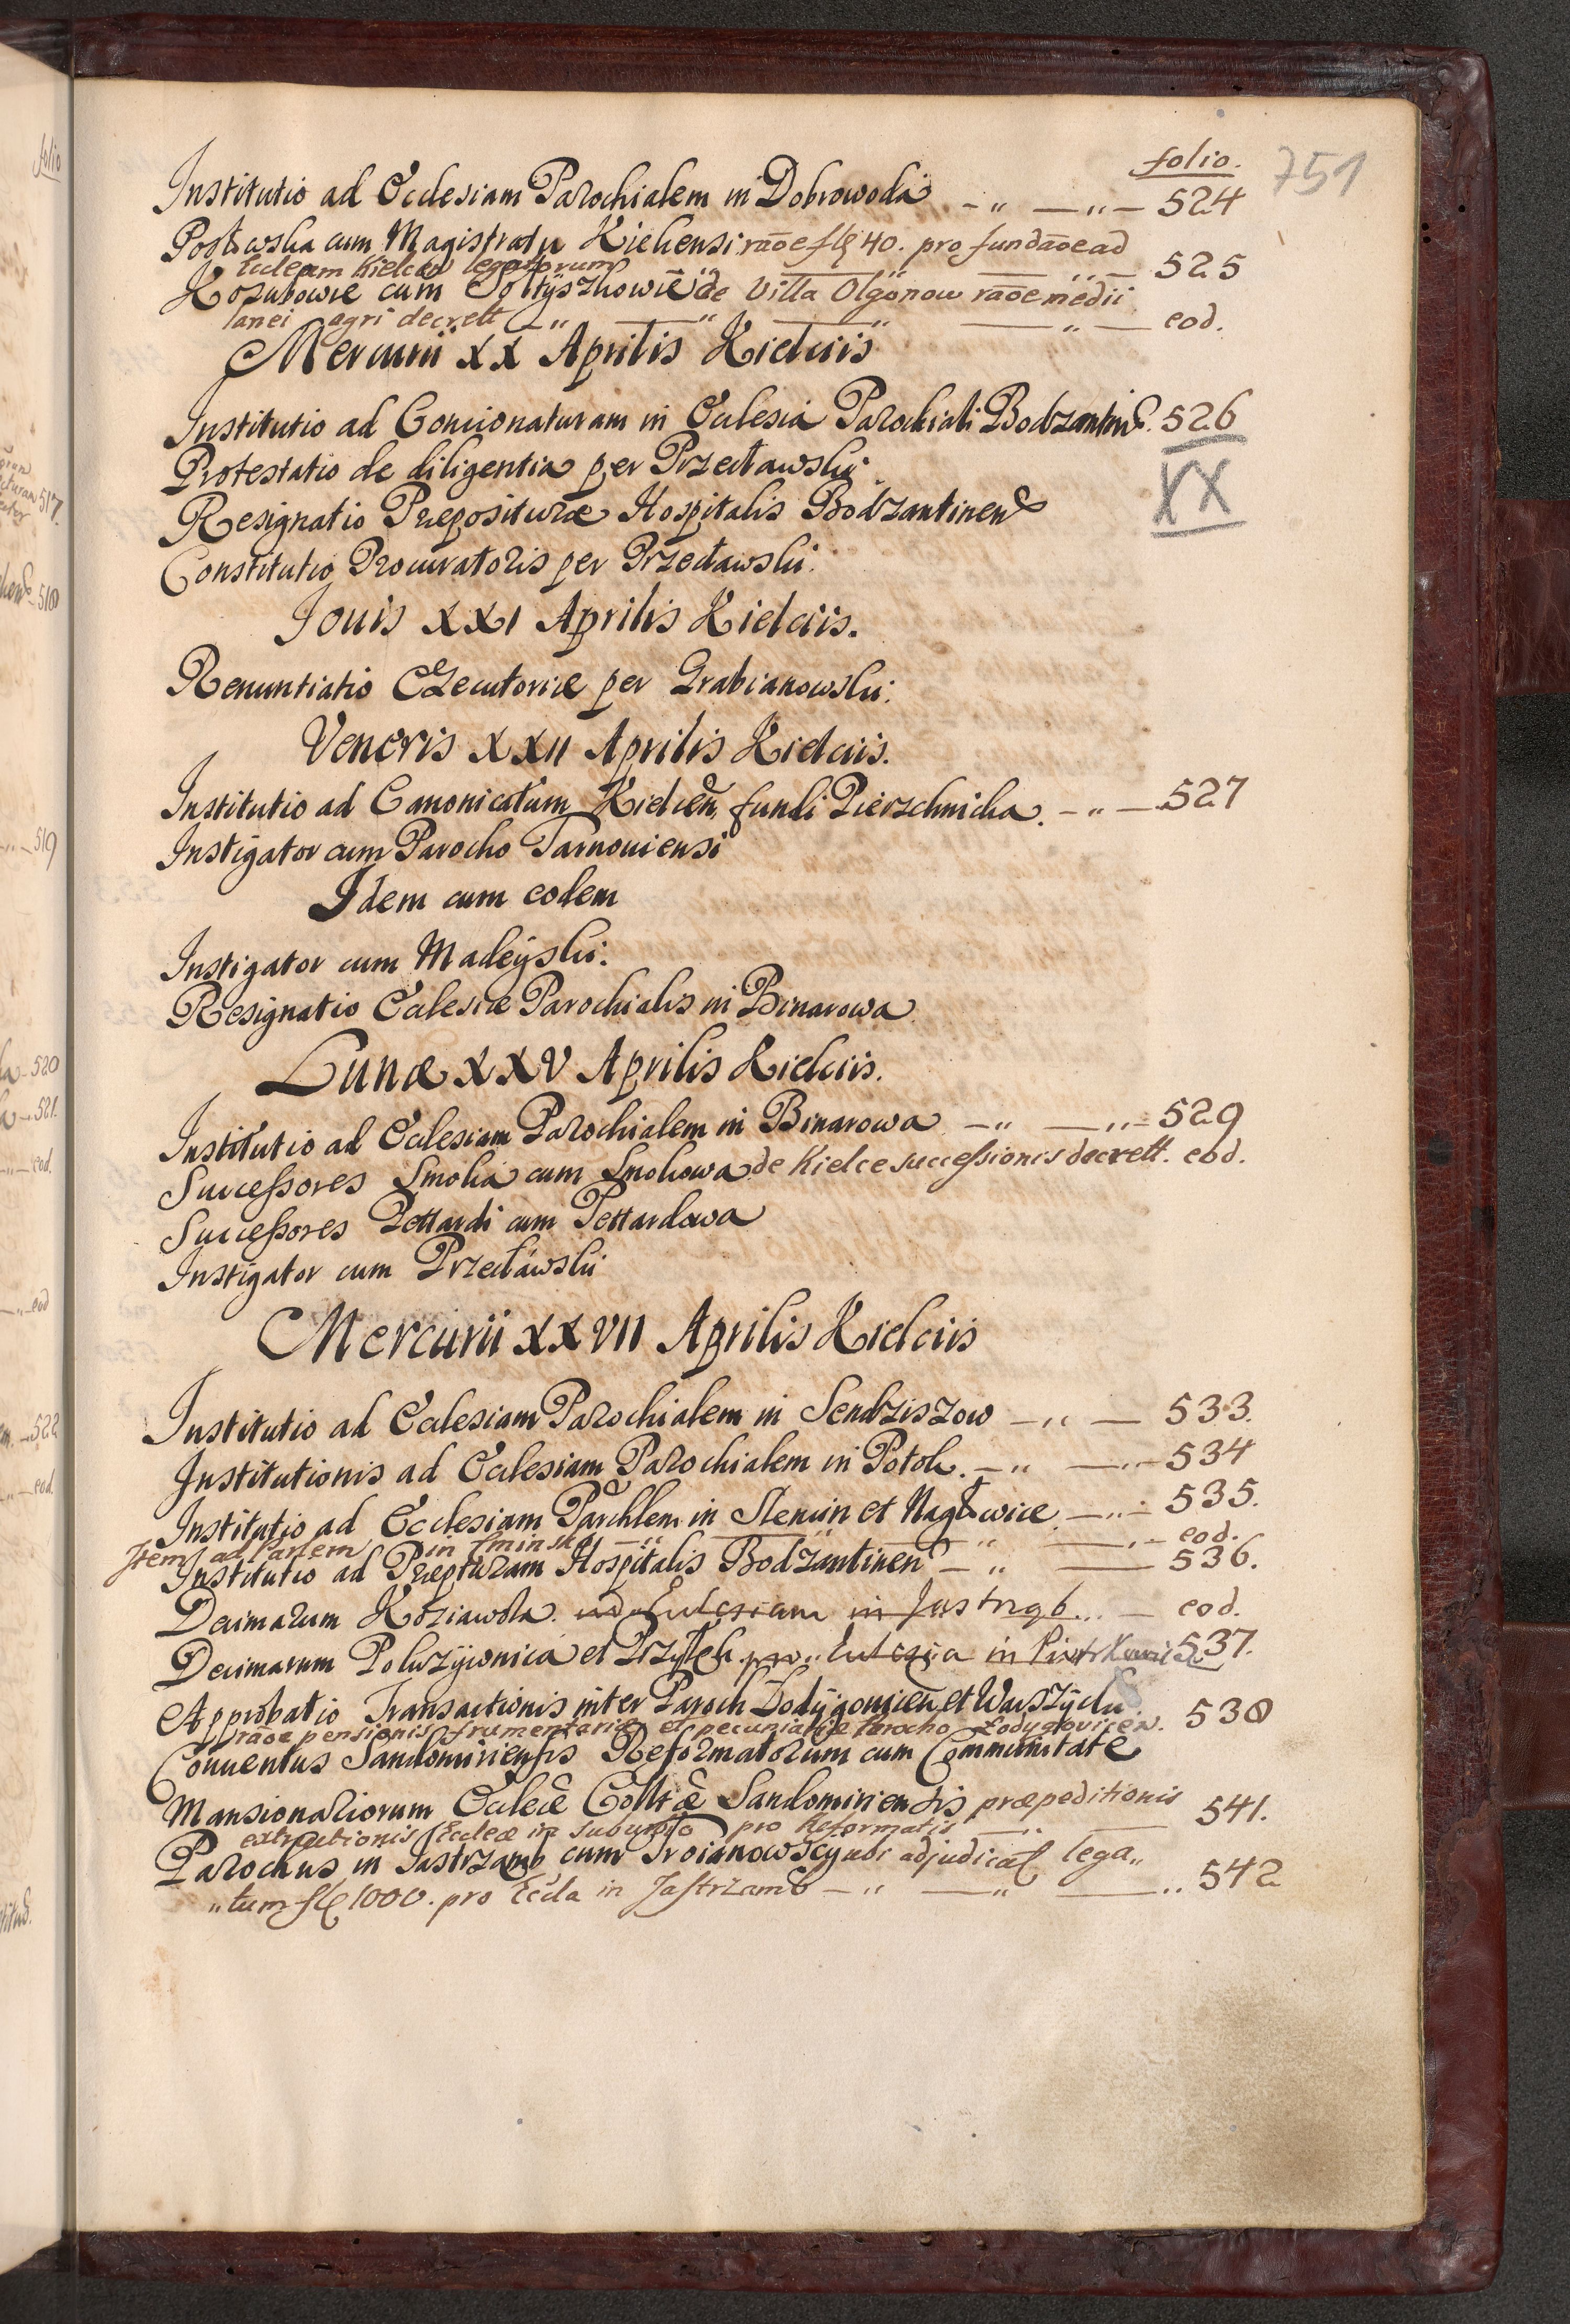 folio.
751
Institutio ad Ecclesiam Parochialem in Dobrowoda -"- -"- 524
cum Magistratu Kielcensi raõe flq 40. pro fundaõe ad
Eccleam Kielcen legatorum -"- 525
Kozubowie cum Sołtyszkowie de Villa Olgonow raõe medii
lanei agri decrett -"- -"- eod.
Mercurii XX Aprilis Kielciis
Institutio ad Concionaturam in Ecclesia Parochiali Bodzantin. 526
XX
Protestatio de diligentia per Przecławski
Resignatio Præposituræ Hospitalis Bodzantinens
Constitutio Procuratoris per Przecławski.
Jouis XXI Aprilis Kielciis.
Renuntiatio Executoriæ per Grabianowski.
Veneris XXII Aprilis Kielciis.
Institutio ad Canonicatum Kielcen fundi Pierzchnicha. -"- 527
Instigator cum Parocho Tarnouiensi
Idem cum eodem
Instigator cum Madeÿski.
Resignatio Ecclesiæ Parochialis in Binarowa
Lunæ XXV Aprilis Kielciis.
Institutio ad Ecclesiam Parochialem in Binarowa -"- -"- 529
Successores Smolka cum Smolkowa de Kielce successionis decrett. eod.
Successores Pettardi cum Pettardowa
Instigator cum Przecławski
Mercurii XXVII Aprilis Kielciis
Institutio ad Ecclesiam Parochialem in Sendziszow -"- 533.
Institutionis ad Ecclesiam Parochialem in Potok. -"- -"- 534
Institutio ad Ecclesiam Parchlem in Slenin et Nagłowice -"- 535.
Item ad Parlem in -"- eod.
Institutio ad Præpturam Hospitalis Bodzantinen -"- 536.
Decimarum Koziawola ad Ecclesiam in Jastrząb eod.
Decimarum et Przytyk pro Ecclesia in 537.
Approbatio Transactionis inter Paroch et
raõe pensionis frumentariæ et pecuniariæ Parocho Łodygovicen. 538
Conuentus Sandomiriensis Reformatorum cum Communitate
Mansionariorum Eccleæ Colltæ Sandomiriensis præpeditionis
extructionis Eccleæ in suburbio pro Reformatis 541.
Parochus in Jastrzamb cum Troianowscy ubi adjudicat lega„
„tum flq 1000. pro Eccla in Jastrzamb -"- -"- 542